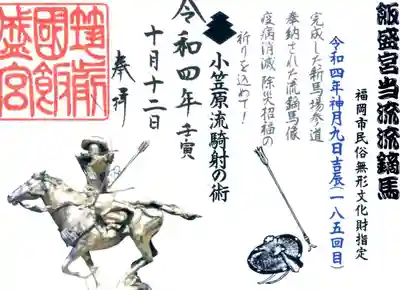 飯盛宮当流流鏑馬
福岡市民俗無形文化財指定
令和四年神月九日吉辰(一八五回目)
完成した新馬場参道
奉納された流鏑馬像
疫病消滅 除災招福の
祈りを込めて!
小笠原流騎射の術
令和四年 壬寅
十月十二日
奉拝
筑前
國飯
盛宮